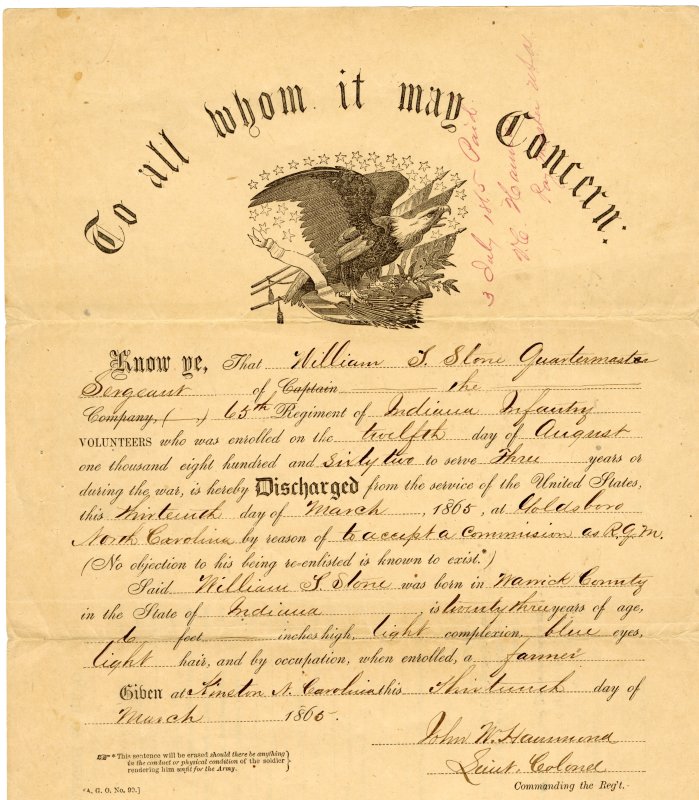 To all whom it may Concern:
3 July 1865 Paid
Know ye, That William S. Stone Quartermaster
Sergeant of Captain the
Company, ( ,) 65th Regiment of Indiana Infantry
VOLUNTEERS who was enrolled on the twelfth day of August
one thousand eight hundred and sixty two to serve Three years or
during the war, is hereby Discharged from the service of the United States,
this thirteenth day of March, 1865, at Goldsboro
North Carolina by reason of to accept a commission as R.Q.M.
(No objection to his being re-enlisted is known to exist.*)
Said William S. Stone was born in Warrick County
in the State of Indiana, is twenty three years of age,
6 feet inches high, light complexion, blue eyes,
light hair, and by occupation, when enrolled, a farmer
Given at Kinston N. Carolina this Thirteenth day of
March 1865.
John W. Hammond
Lieut. Colonel
Commanding the Reg't.
* This sentence will be erased should there be anything
in the conduct or physical condition of the soldier
rendering him unfit for the Army.
[A. G. O. No. 99.]